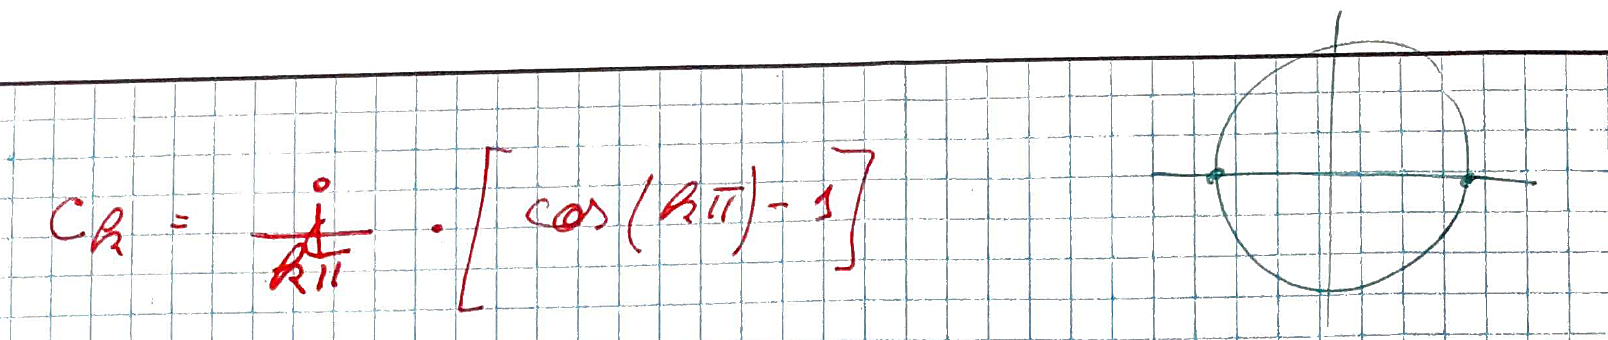 Ck = j/kπ · [cos(kπ) - 1]